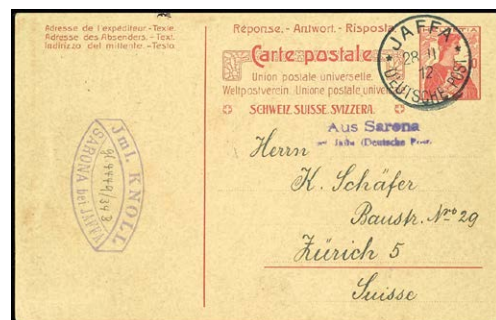 Adresse de l'expéditeur.-Texte.
Adresse des Absenders. - Text.
Indirizzo del mittente. - Testo
Réponse. - Antwort. - Risposta
Carte postale
Union postale universelle.
Weltpostverein. Unione postale univers
SCHWEIZ SUISSE SVIZZERA
JAFFA
28 11
12
DEUTSCHE POST
Aus Sarona
Jaffa (Deutsche Post
Herrn
K. Schäfer
Baustr. Nro 29
Zürich 5
Suisse
Jml. KNOLL
SARONA bei JAFFA